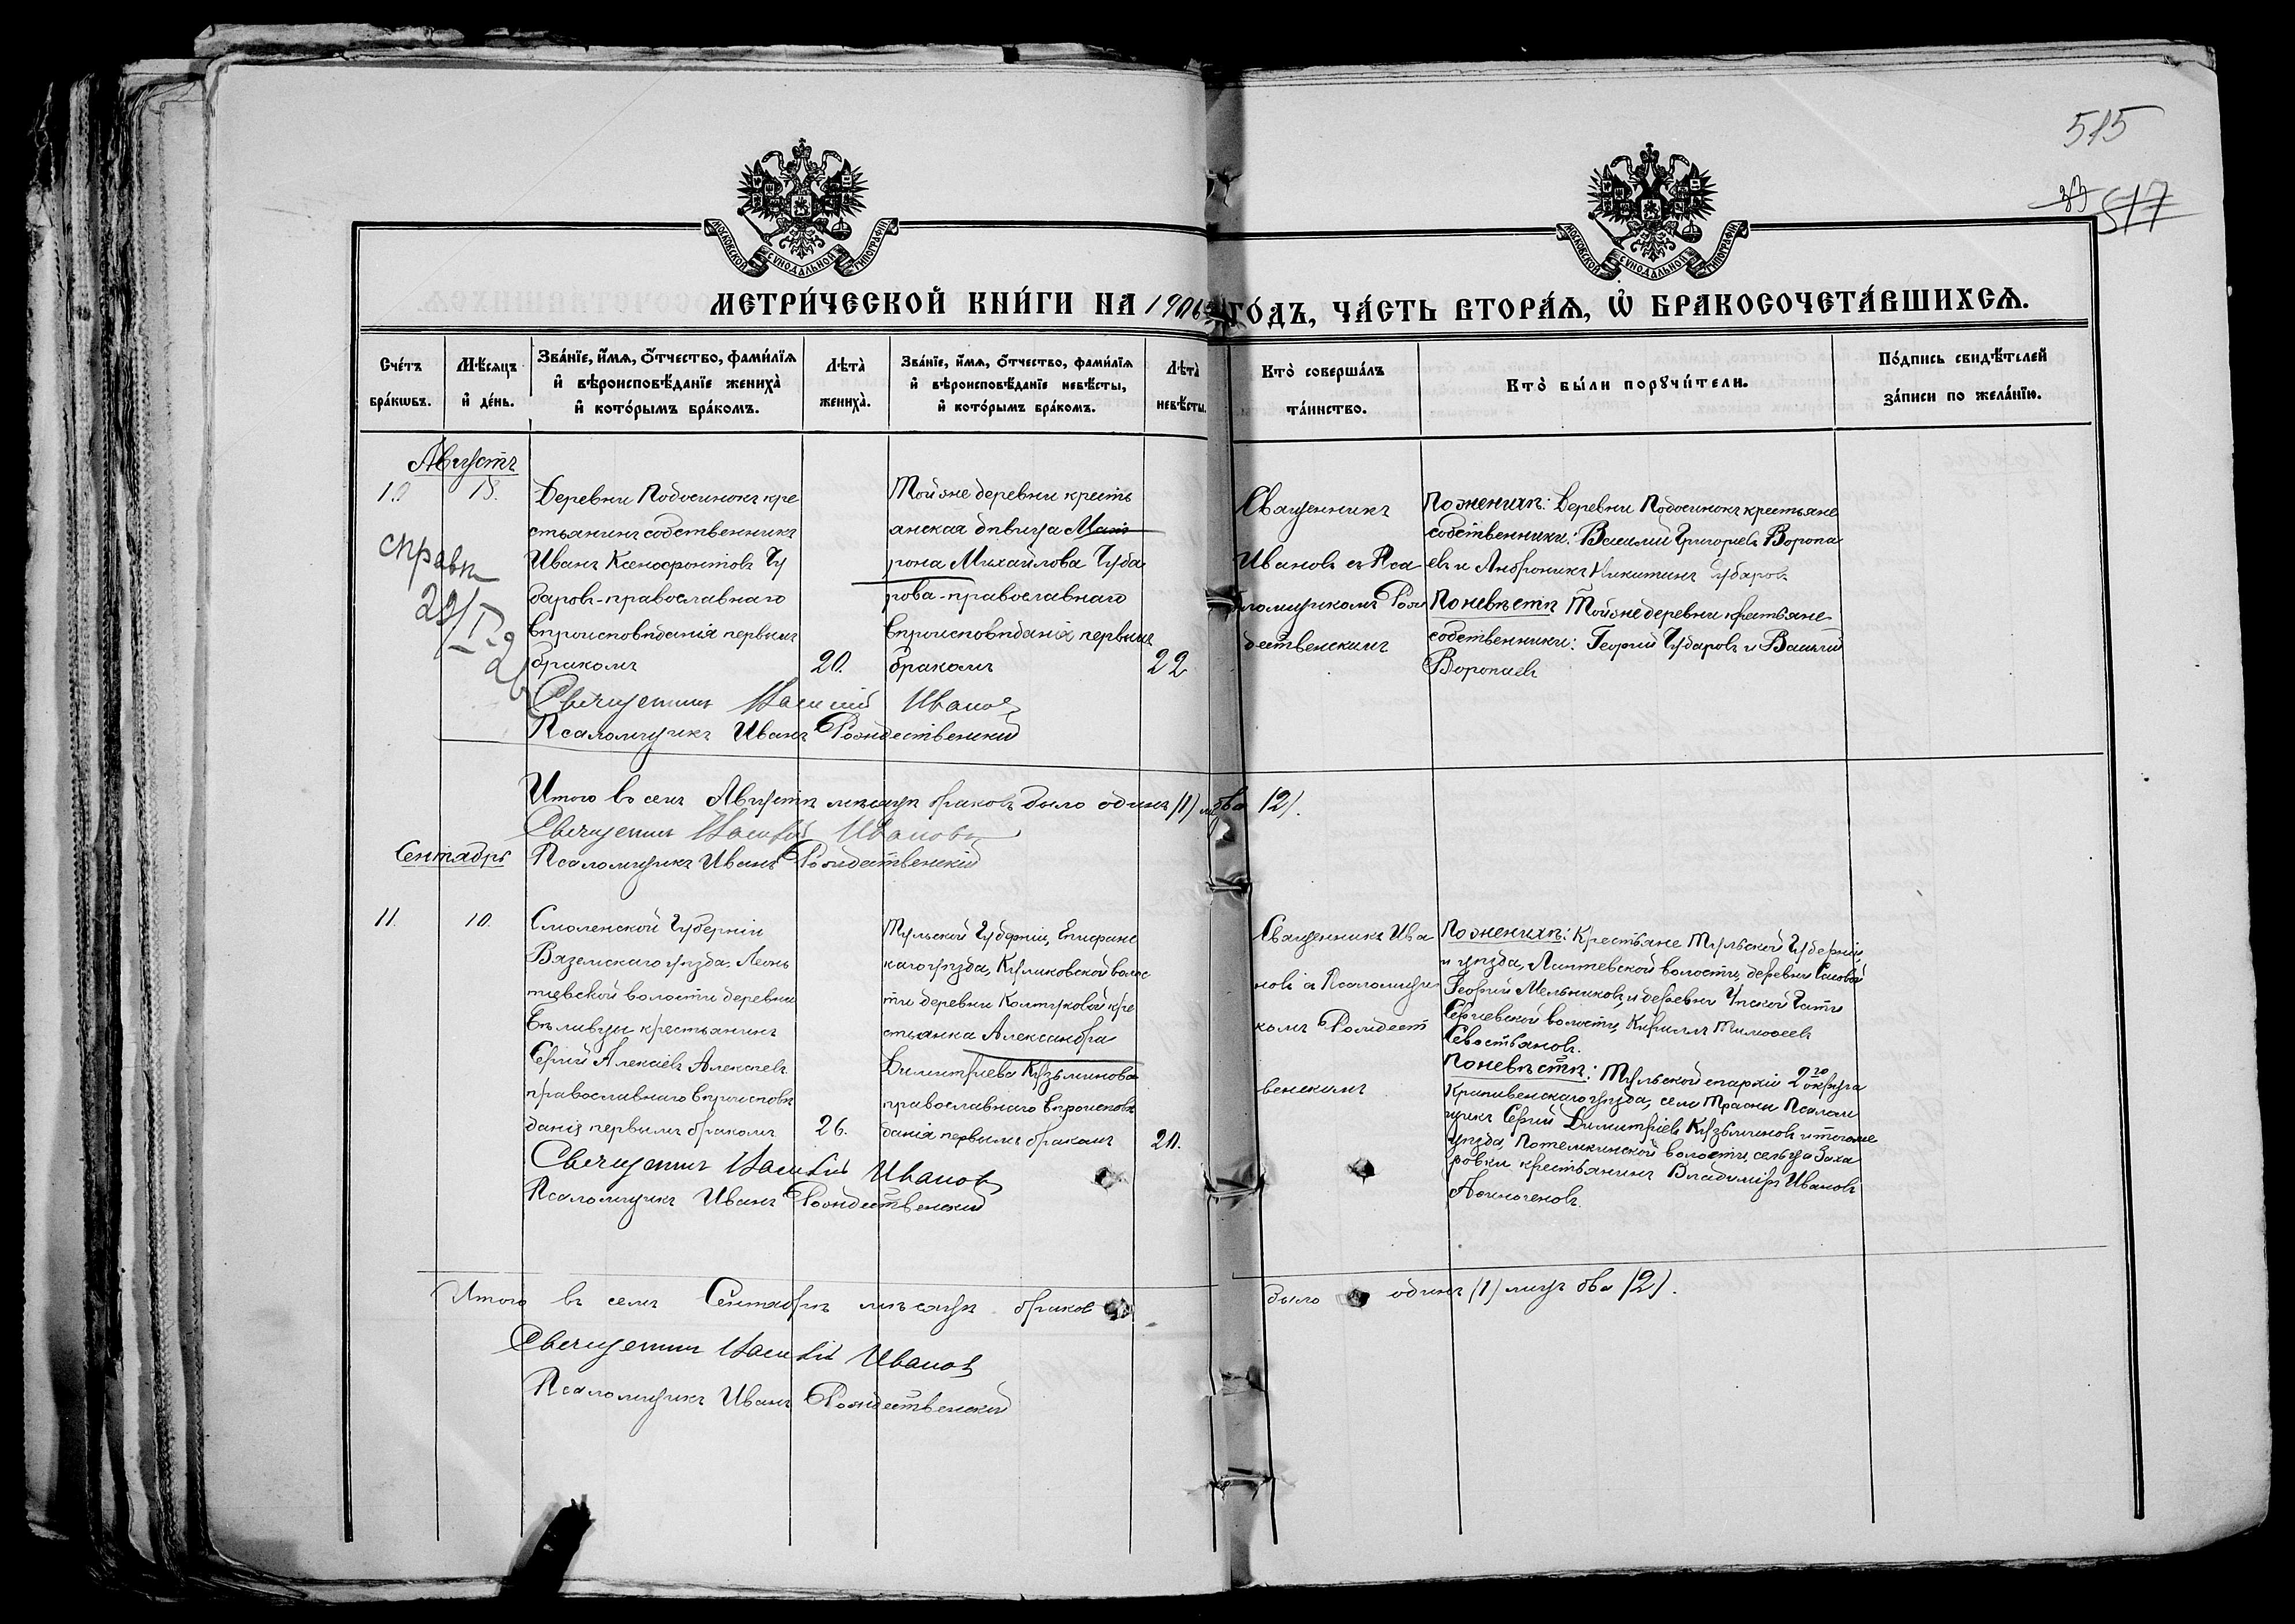 515
517
МОСКОВСКОЙ СѴНОДАЛЬНОЙ ТИПОГРАФІИ
МОСКОВСКОЙ СѴНОДАЛЬНОЙ ТИПОГРАФІИ
МЕТРИ́ЧЕСКОЙ КНИ́ГИ НА 1906 ГО́ДЪ, ЧА́СТЬ ВТОРА́Я, Ѽ БРАКОСОЧЕТА́ВШИХСѦ.
Сче́тъ бра́кѡвъ.
Мѣ́сяцъ и҆ де́нь.
Зва́нїе, и҆́мѧ, ѻ҆́тчество, фами́лїѧ и҆ вѣроисповѣ́данїе жениха̀ и҆ кото́рымъ бра́комъ.
Лѣта̀ жениха̀.
Зва́нїе, и҆́мѧ, ѻ҆́тчество, фами́лїѧ и҆ вѣроисповѣ́данїе невѣ́сты, и҆ кото́рымъ бра́комъ.
Лѣта̀ невѣ́сты.
Кто̀ соверша́лъ та́инство.
Кто̀ бы́ли порꙋчи́тели.
По́дпись свидѣ́телей за́писи по жела́нїю.
Августъ
10
справк
29/I
Деревни Подосинокъ кре
стьянинъ собственникъ
Иванъ Ксенофонтовъ Чу
баровъ-православнаго
вѣроисповѣданія первымъ
бракомъ
20.
Той же деревни кресть
янская дѣвица
рона Михайлова Чуба
рова-православнаго
вѣроисповѣданія первымъ
бракомъ
22
Священникъ
Ивановъ съ Пса
ломщикомъ Рож
дественскимъ
По женихѣ: Деревни Подосинокъ крестьяне
собственники: Василий Григорьевъ Воропа
евъ и Андроникъ Никитинъ Чубаровъ
По невѣстѣ Той же деревни крестьяне
собственники: Георгий Чубаровъ и Василий
Воропаевъ
Священникъ Василий Ивановъ
Псаломщикъ Иванъ Рождественский
Итого въ семъ Августѣ мѣсяцѣ браковъ было одинъ (1) лицъ два (2).
Священникъ Василій Ивановъ
Сентябрь
Псаломщикъ Иванъ Рождественскій
11.
10.
Смоленской Губерніи
Вяземскаго уѣзда, Леонь
тьевской волости деревни
крестьянинъ
Сергій Алексѣевъ Алексѣевъ
православнаго вѣроисповѣ
данія первымъ бракомъ
26.
Тульской Губерніи, Епифанс
каго уѣзда, Куликовской волос
ти деревни Колтуковой кре
стьянка Александра
Димитріева Кузьминова
православнаго вѣроисповѣ
данія первымъ бракомъ
20.
Священникъ Ива
новъ съ Псаломщи
комъ Рождест
венскимъ
По женихѣ: Крестьяне Тульской Губерніи
и уѣзда, Лаптевской волости, деревни
Георгій Мельниковъ, и деревни Упской Гати
Сергіевской волости, Кириллъ Тимофеевъ
Севостьяновъ.
По невѣстѣ: Тульской епархіи 2го округа
Крапивенскаго уѣзда, села Трасны Псалом
щикъ Сергій Димитріевъ Кузьминовъ и того же
уѣзда, Потемкинской волости, сельца Заха
ровки крестьянинъ Владиміръ Ивановъ
Священникъ Василій Ивановъ
Псаломщикъ Иванъ Рождественский
Итого въ семъ Сентябрѣ мѣсяцѣ браковъ было одинъ (1) лицъ два (2).
Священникъ Василій Ивановъ
Псаломщикъ Иванъ Рождественский